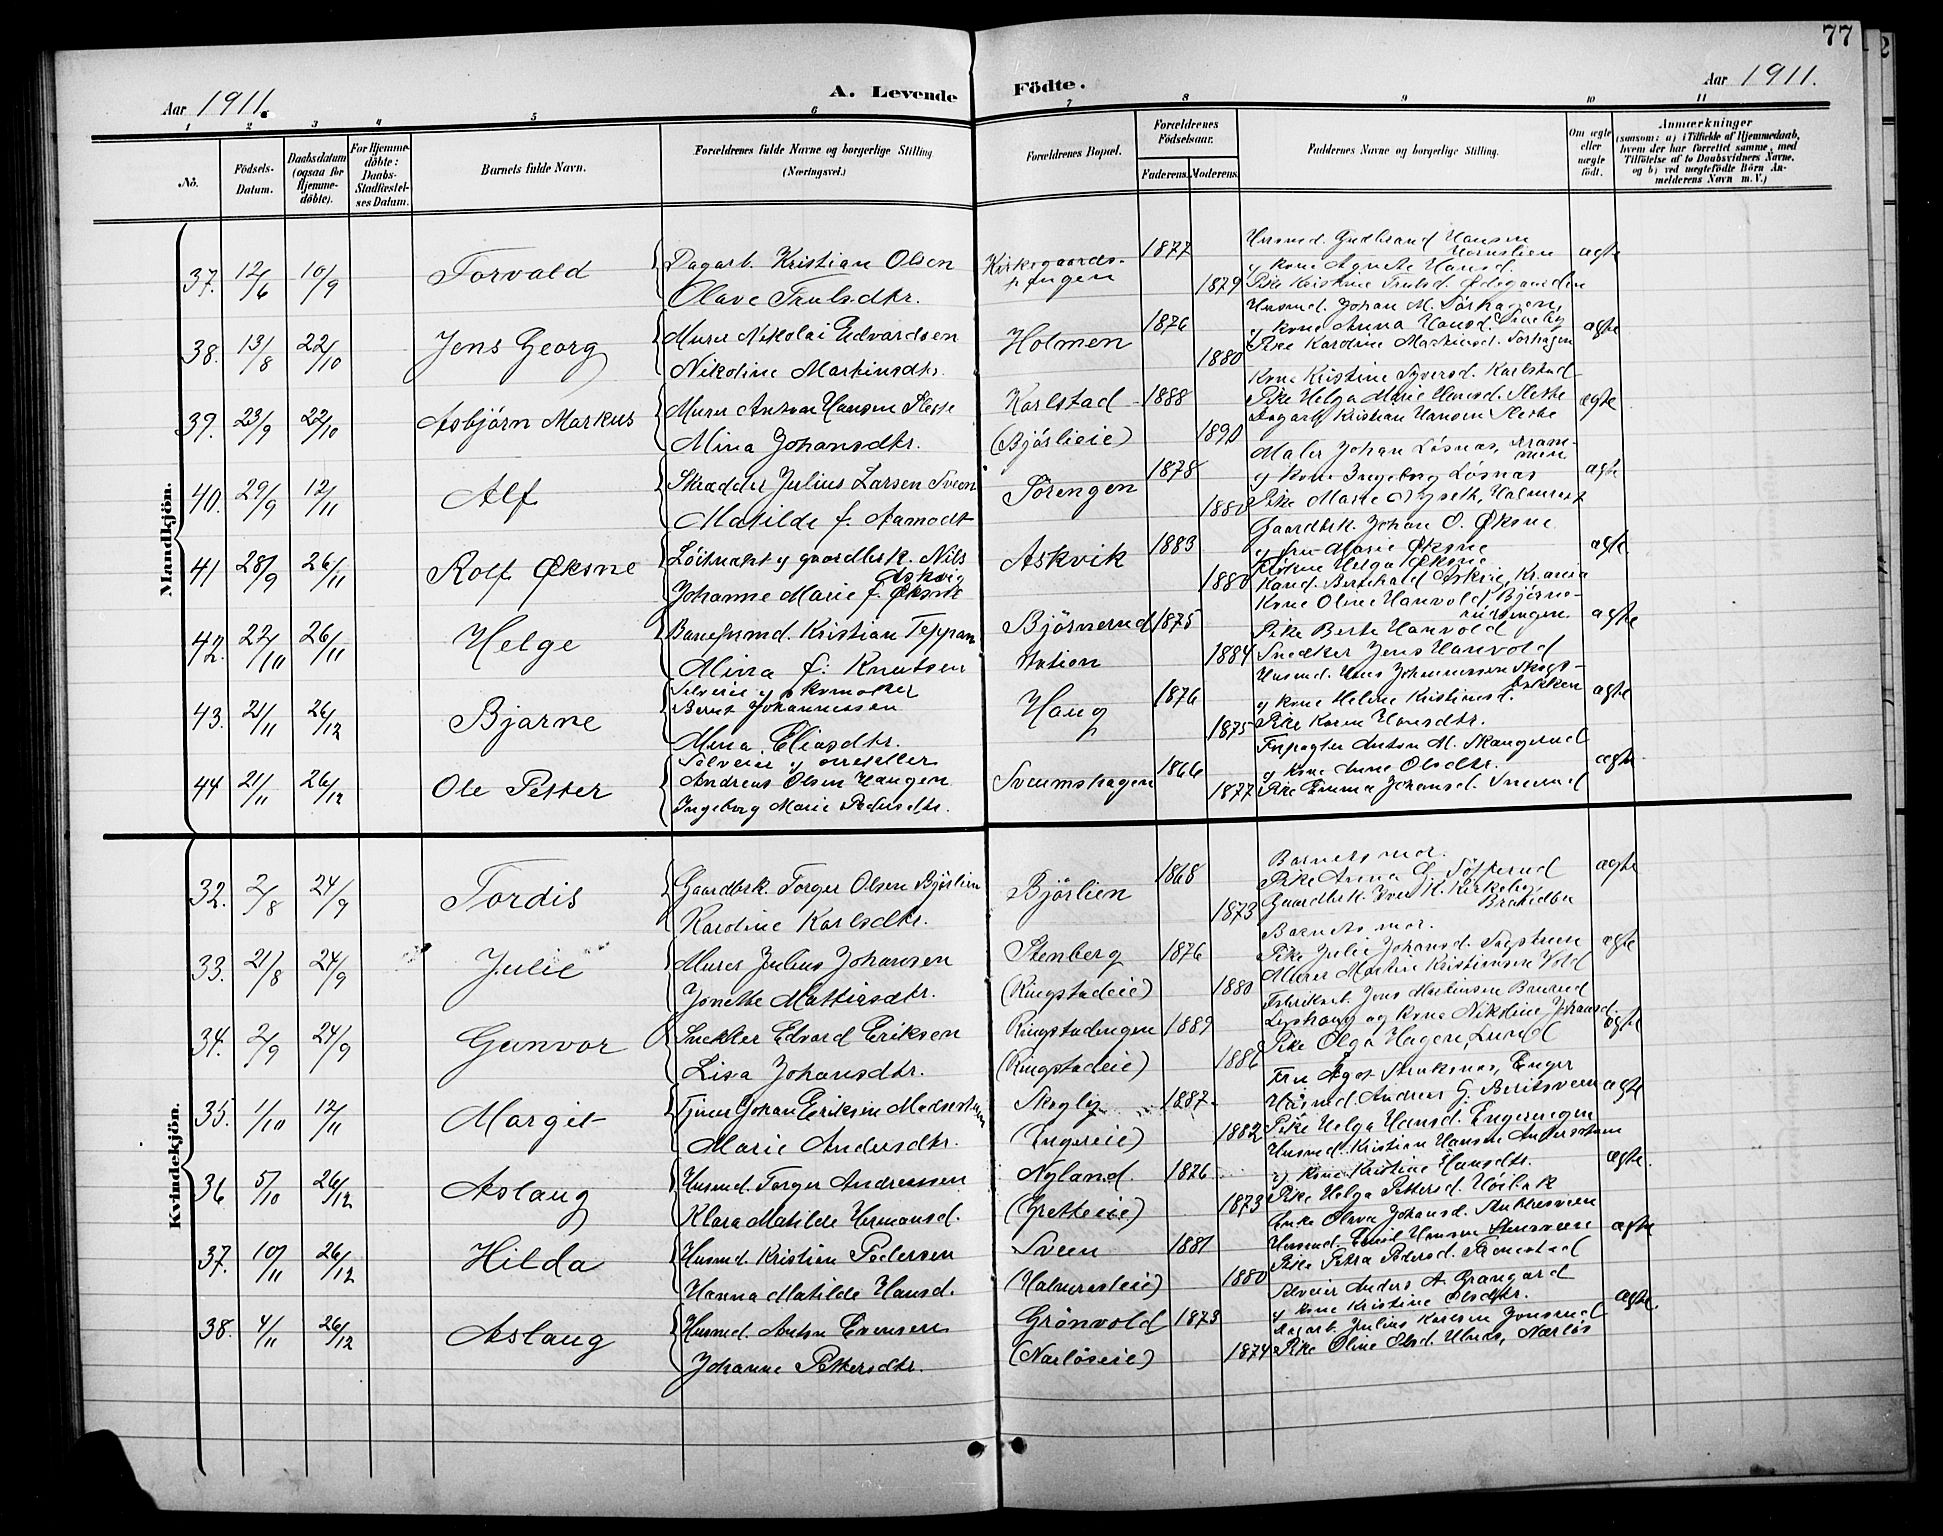 77
Aar 1911.
A. Levende Födte.
Aar 1911.
1 2 3 4 5 6 7 8 9 10 11
Nö.
Födsels-Datum.
Daabsdatum (ogsaa for Hjemme-döbte).
For Hjemme-döbte: Daabs-Stadfæstel-ses Datum.
Barnets fulde Navn.
Forældrenes fulde Navne og borgerlige Stilling (Næringsvei.)
Forældrenes Bopæl.
Forældrenes Födselsaar.
Faderens. Moderens.
Faddernes Navne og borgerlige Stilling.
Om ægte eller uægte födt.
Anmærkninger
(saasom: a) i Tilfælde af Hjemmedaab,
hvem der har forrettet samme, med
Tilföielse af to Daabsvidners Navne.
og b) ved uægtefödte Börn An-
melderens Navn m. V.)
Mandkjön.
37. 12/6 10/9 Torvald
Dagarb. Kristian Olsen
Olave Trulsdtr.
Kirkegaards-engen
1877 1879
Husmd. Gudbrand Hansen Hornslien
y kone Agnete Hansd.
Pike Kristine Trulsd. Ødegaarden
ægte
38. 13/8 22/10 Jens Georg
Murer Nikolai Edvardsen
Nikoline Martinsdtr.
Holmen
1876 1880
Husmd. Johan M. Sörhagen,
y kone Anna Hansd. Sveby
Pike Karoline Martinsd. Sörhagen
ægte
39. 23/9 22/10 Asbjörn Markus
Murer Anton Hansen Slette
Mina Johansdtr.
Karlstad
(Bjørlieie)
1888 1890
Kone Kristine Syversd. Karlstad
Pike Helga Marie Hansd. Slette
Dagarb. Kristian Hansen Slette
ægte
40. 29/9 12/11 Alf
Skrædder Julius Larsen Sveen
Matilde f. Aamodt
Sörengen
1878 1880
Maler Johan Løsnas, Dram-men
y kone Ingeborg Løsnas
Pike Marie Nyseth, Halmrast
ægte
41 28/9 26/11 Rolf Øksne
Löitnant y gaardbrk. Nils Askvig
Johanne Marie f. Øksne
Askvik
1883 1880
Gaardbrk. Johan O. Øksne
y fru Marie Øksne
Frøken Helga Øksne
Kand. Berthold Askvig, Kr.ania
ægte
42. 22/10 26/11 Helge
Banefrmd. Kristian Teppan
Mina f. Knutsen
Bjørnerud
Station
1875 1884
Kone Oline Hanvold, Bjørne-rudengen
Pike Berte Hanvold
Snedker Jens Hanvold
ægte
43. 21/11 26/12 Bjarne
Selveier y skomaker
Bernt Johannessen
Mina Eliasdtr.
Haug
1876 1875
Husmd. Hans Johannessen Skogs-bakken
y kone Helene Kristiansd.
Pike Karen Hansdtr.
ægte
44 21/11 26/12 Ole Petter
Selveier y
Andreas Olsen Haugen
Ingeborg Marie Pedersdtr.
Sveumshagen
1866 1877
Forpagter Anton M. Skangerud
y kone Anne Olsdtr.
Pike Emma Johansd. Snerud
ægte
Kvindekjön.
32. 2/8 24/9 Tordis
Gaardbrk. Torger Olsen Bjørlien
Karoline Karlsdtr.
Bjørlien
1868 1873
Barnets mor.
Pike Anna G. Søfferud
Gaardbrk. Iver K. Kirkeby
ægte
33. 21/8 24/9 Julie
Murer Julius Johansen
Jonette Mattiasdtr.
Stenberg
(Ringstadeie)
1876 1880
Barnets mor.
Pike Julie Johansd. Sagstuen
Murer Martin Kristiansen Vold
ægte
34. 2/9 24/9 Gunvor
Snekker Edvard Eriksen
Lisa Johansdtr.
Ringstadengen
(Ringstadeie)
1889 1886
Fabrikarb. Jens Martinsen Baarud
Lephaug og kone Nikoline Johansd.
Pike Olga Hagen, Lund
ægte
35. 1/10 12/11 Margit
Tjener Johan Eriksen
Marie Andersdtr.
Skogly
(Engereie)
1887. 1882
Fru Ågot Struksnæs, Enger
Husmd. Andreas G. Beritsveen
Pike Helga Hansd. Engerengen
ægte
36 5/10 26/12 Aslaug
Husmd. Torger Andreassen
Klara Matilde Hermansd.
Nyland.
(Gretteeie)
1876 1873
Husmd. Kristian Hansen
y kone Kristine Hansdtr.
Pike Helga Pettersd. Høibak
ægte.
37. 10/11 26/12 Hilda
Husmd. Kristian Pedersen
Hanna Matilde Hansd.
Sveen
(Halmrasteie)
1881 1880
Enke Olava Johansd.
Husmd. Emil Hansen
Pike Petra Pedersd.
ægte
38. 4/11 26/12 Aslaug
Husmd. Anton Evensen
Johanne Pettersdtr.
Grönvold
(Narløseie)
1873 1874
Selveier Anders A. Grangard
y kone Kristine Olsdtr.
Dagarb. Julius Karlsen Jonsrud
Pike Oline Olsd. Ulnæs, Nærløs
ægte.